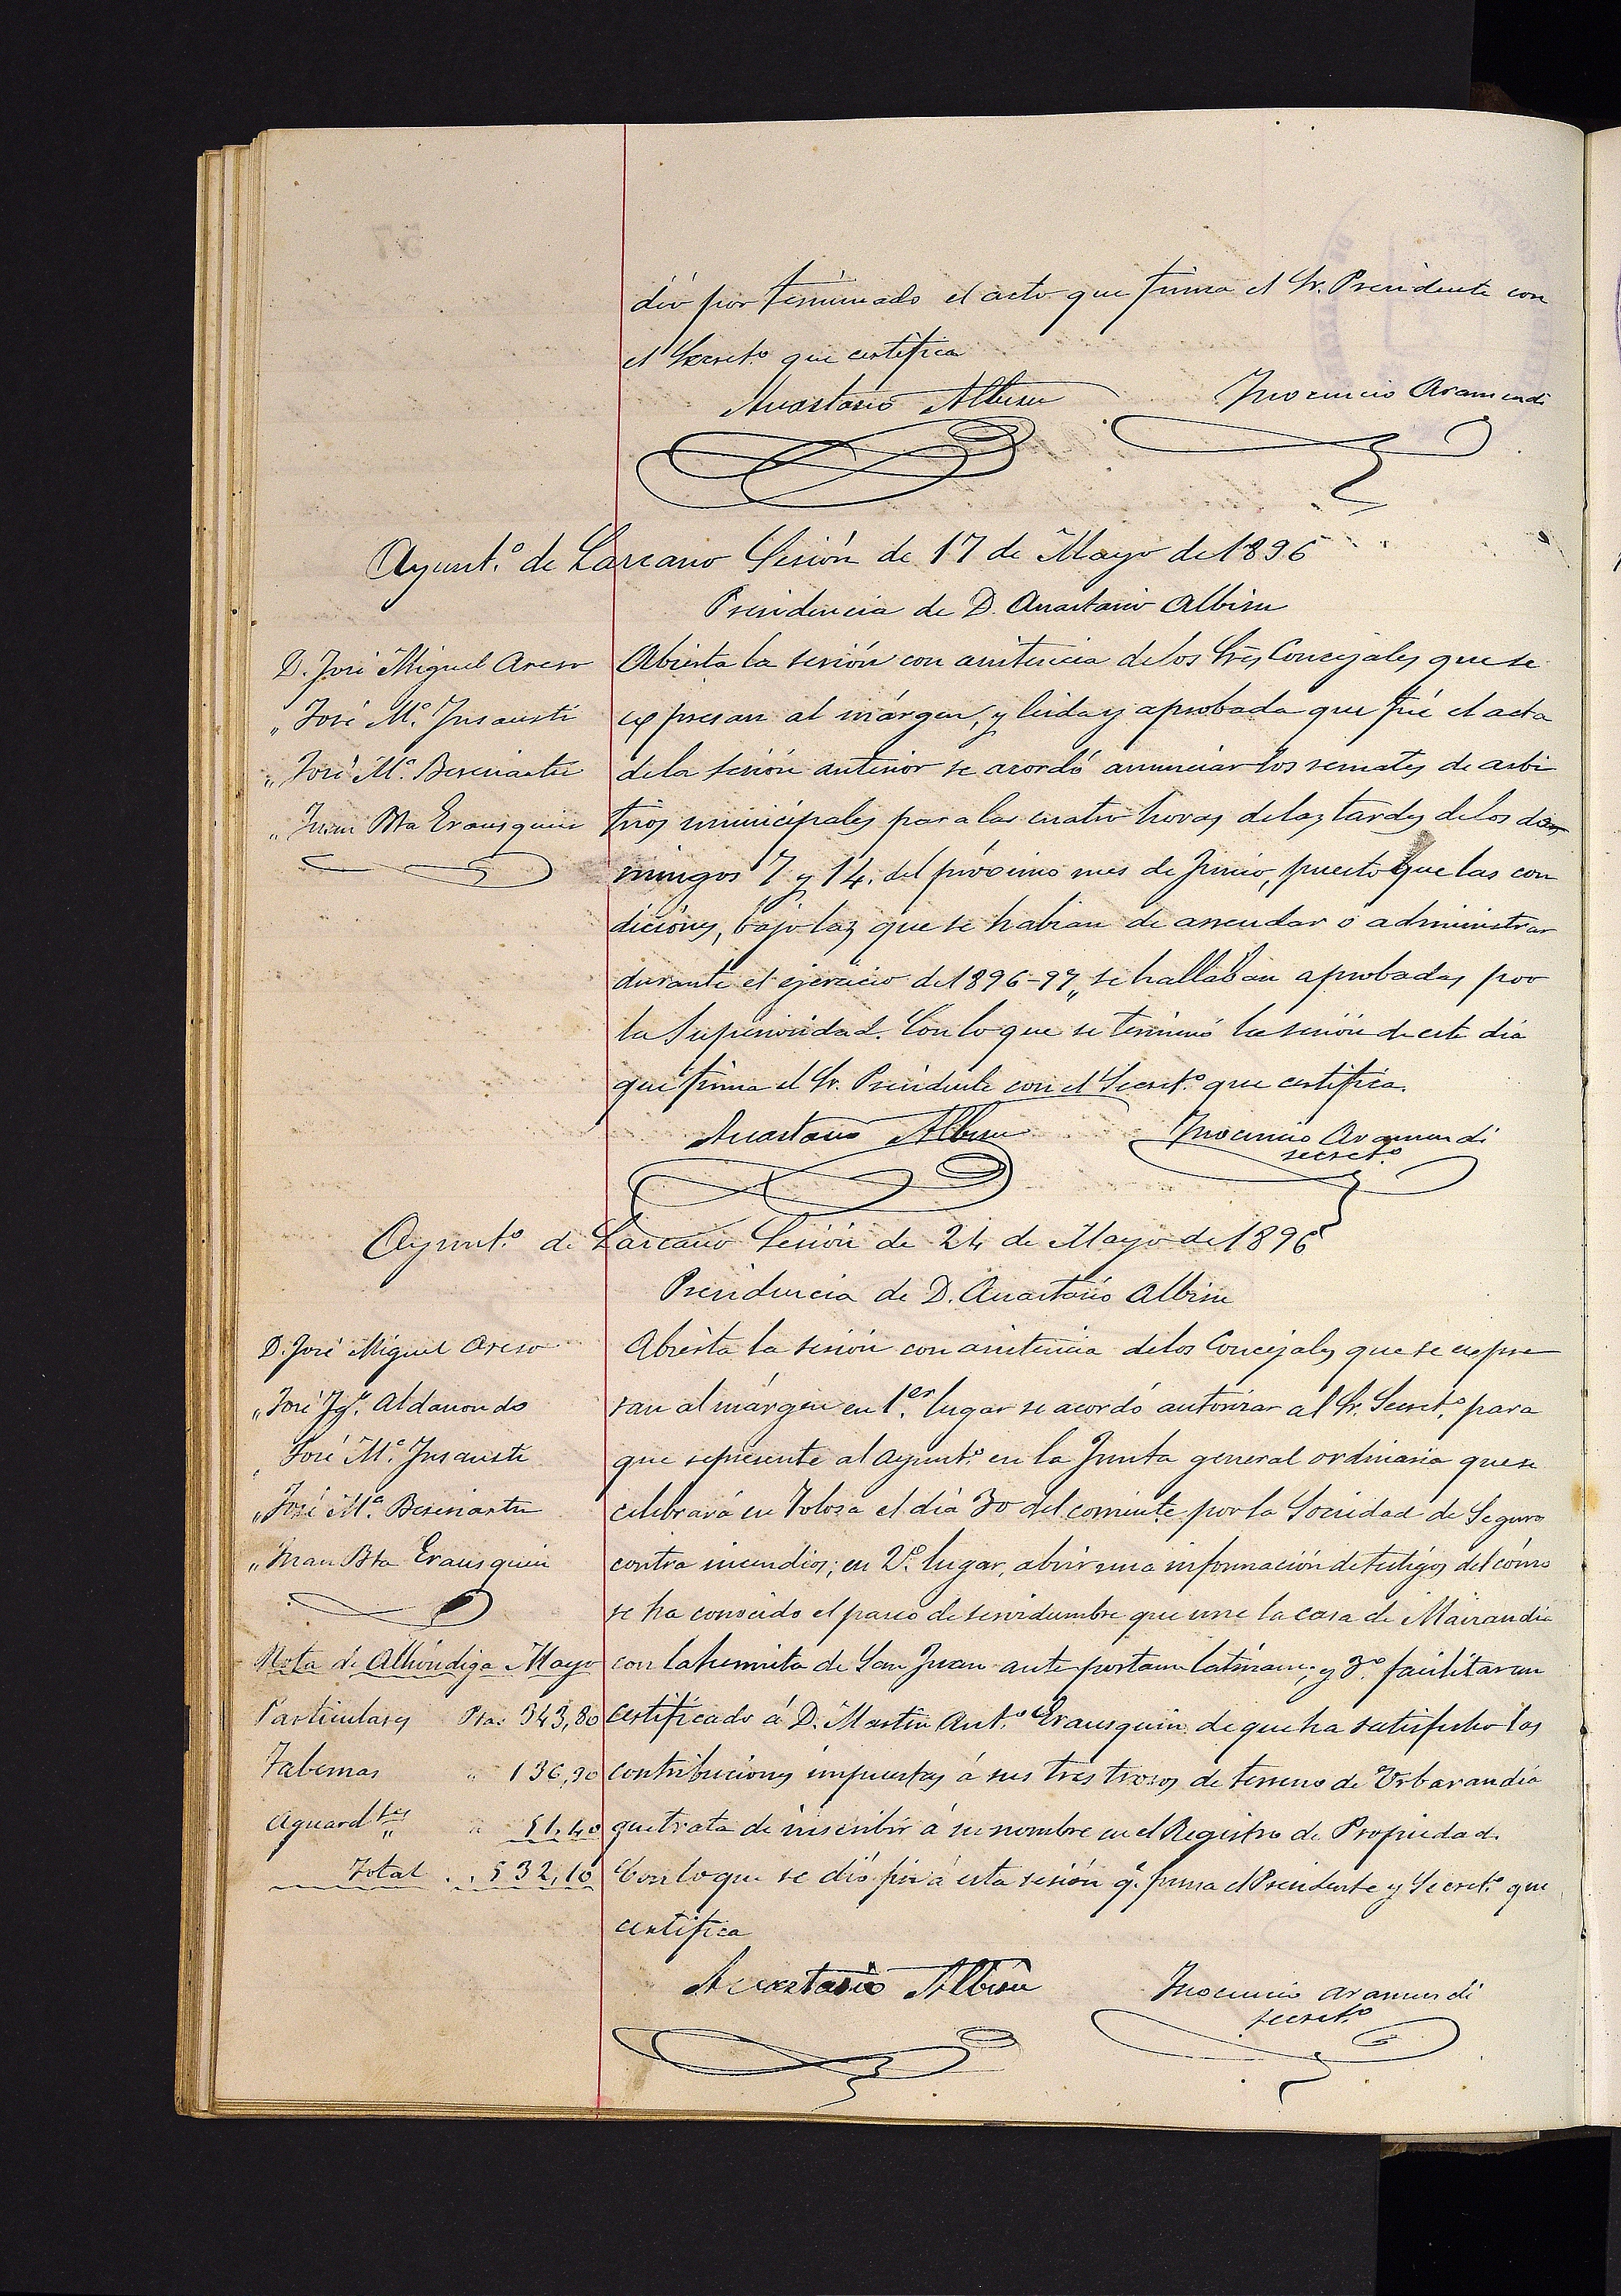 dió por terminado el acto que firma el Sr. Presidente con
el Secretº que certifica
Anastasio Albisu
Inocencio Aramendi
Ayuntº de Lazcano Sesión de 17 de Mayo de 1896
Presidencia de D. Anastasio Albisu
D. José Miguel Areso
„ José Mª Insausti
„ José Mª Beseriartu
„ Juan Bta Erausquin
Abierta la sesión con asistencia de los Sres Concejales que se
expresan al márgen, y leida y aprobada que fué el acta
de la sesión anterior se acordó anunciar los remates de arbi
trios municipales para las cuatro horas de las tardes de los do
mingos 7 y 14 del próximo mes de Junio, puesto que las con
diciones, bajo las que se habian de arrendar ó administrar
durante el ejercicio de 1896-97„ se hallaban aprobadas por
la Superioridad. Con lo que se terminó la sesión de este dia
que firma el Sr. Presidente con el Secretº que certifica.
Anastasio Albisu
Inocencio Aramendi
secretº
Ayuntº de Lazcano Sesión de 24 de Mayo de 1896
Presidencia de D. Anastasio Albisu
D. José Miguel Areso
„ José Igº Aldanondo
„ José Mª Insausti
„ José Mª Beseriartu
„ Juan Bta Erausquin
Abierta la sesión con asistencia de los Concejales que se expre
san al márgen en 1.er lugar se acordó autorizar al Sr. Secretº para
que represente al Ayuntº en la Junta general ordinaria que se
celebrará en Tolosa el día 30 del corriente por la Sociedad de Seguro
contra incendios; en 2º lugar, abrir una información de testigos del cómo
se ha conocido el paseo de servidumbre que une la casa de Mairandia
con la hermita de San Juan ante portam latinam; y 3º facilitar un
certificado á D. Martin Antº Erausquin de que ha satisfecho las
contribuciones impuestas á sus tres trozos de terreno de Urbarandia
que trata de inscribir á su nombre en el Registro de Propiedad.
Con lo que se dió fin á esta sesión q. firma el Presidente y Secretº que
certifica
Nota de Alhóndiga Mayo
Particulares Ptas 343,80
Tabernas „ 136,90
Aguardtes „ 51,40
Total . . 532,10
Anastasio Albisu
Inocencio Aramendi
secretº